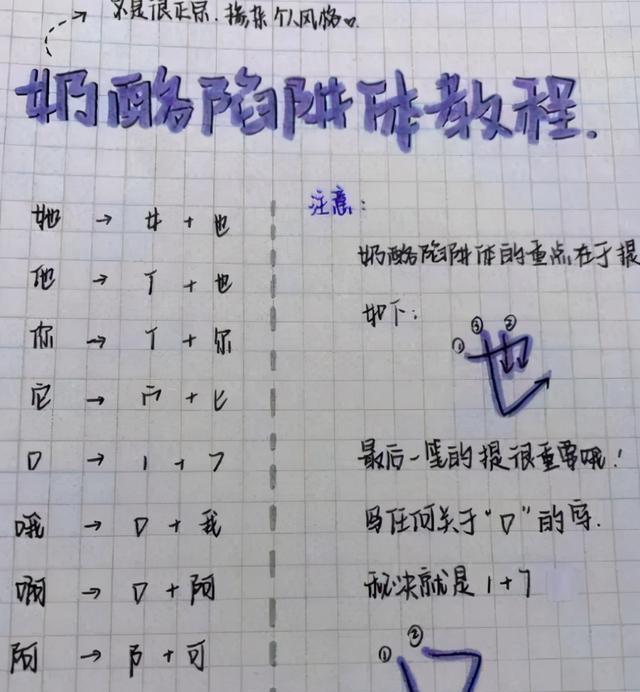 不是很正宗.掺杂个人风格
奶酪陷阱体教程.
她 → 女 + 也
他 → 亻 + 也
你 → 亻 + 尔
它 → 宀 + 匕
口 → 1 + 7
哦 → 口 + 我
啊 → 口 + 阿
阿 → 阝 + 可
注意:
奶酪陷阱体的重点在于提
如下:
① ③ ②
也
最后一笔的提很重要哦!
写任何关于“口”的字.
秘诀就是 1 + 7
① ②